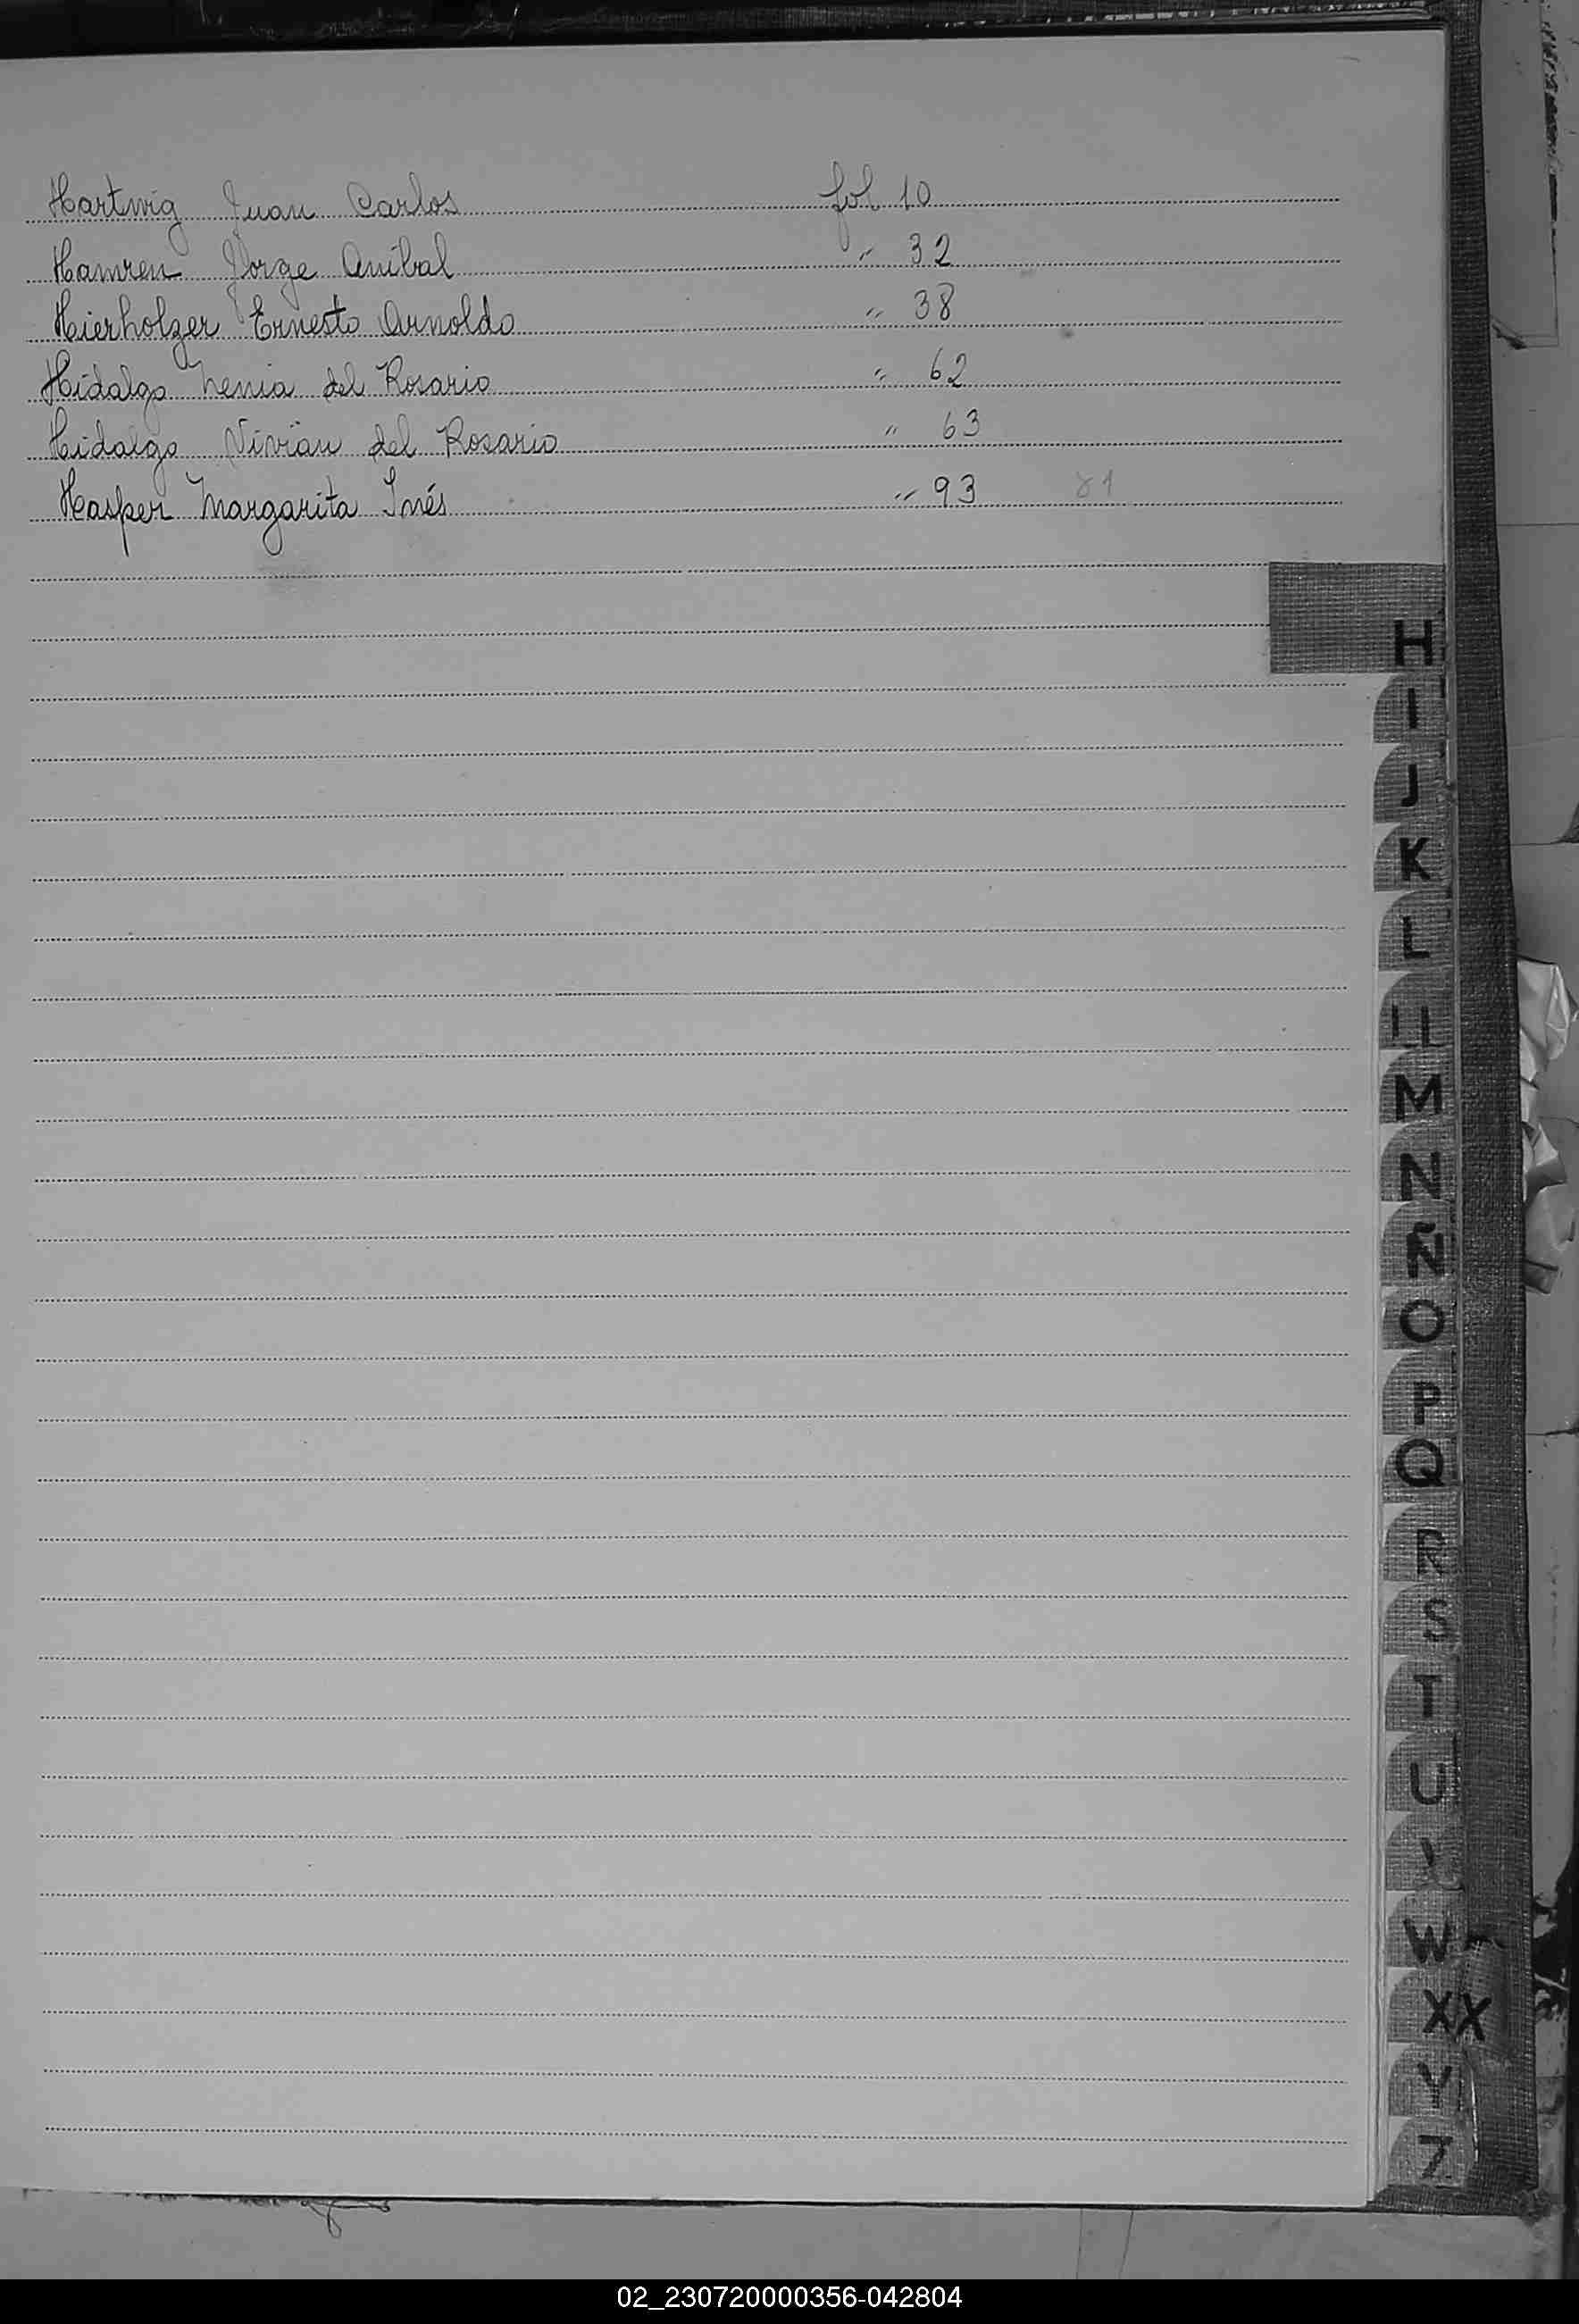 Hartwig Juan Carlos fol 10
Hamren Jorge Anibal " 32
Hierholzer Ernesto Arnoldo " 38
Hidalgo del Rosario " 62
Hidalgo Vivian del Rosario " 63
Hasper Margarita Inés " 93 81
H
I
J
K
L
Ll
M
N
Ñ
O
P
Q
R
S
T
U
W
XX
Y
Z
02_230720000356-042804